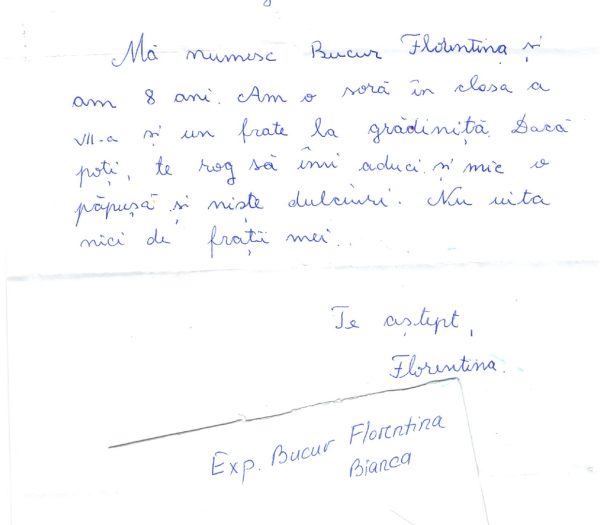 Mă numesc Bucur Florentina și
am 8 ani. Am o soră în clasa a
VII-a și un frate la grădiniță. Dacă
poți, te rog să îmi aduci și mie o
păpușă și niște dulciuri. Nu uita
nici de frații mei..
Te aștept,
Florentina.
Exp. Bucur Florentina
Bianca